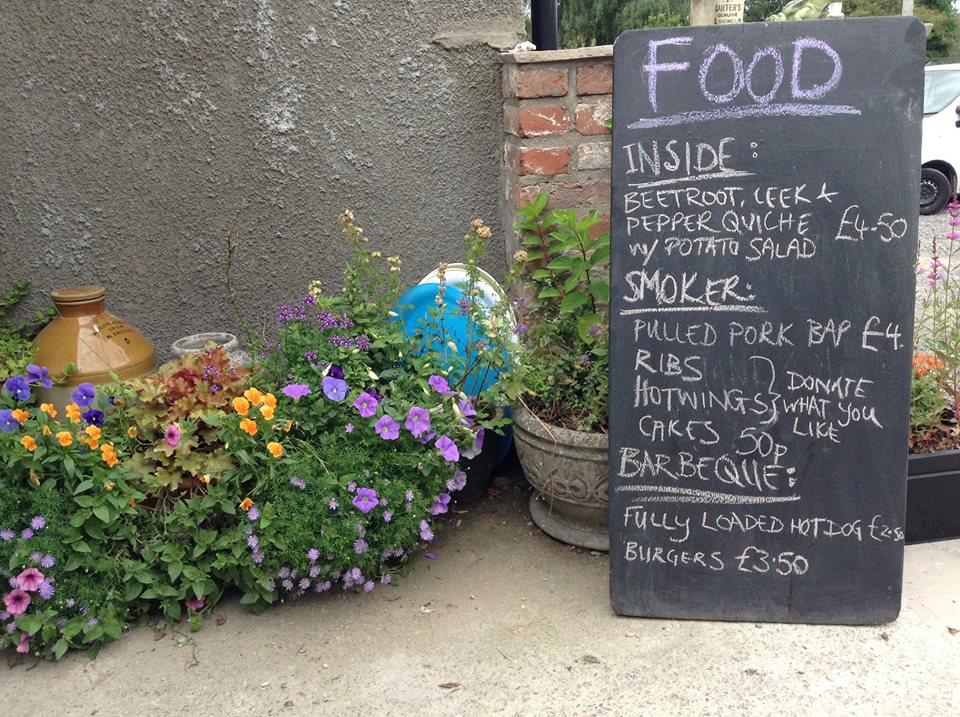 CARTER'S
FOOD
INSIDE:
BEETROOT, LEEK +
PEPPER QUICHE £4.50
W/ POTATO SALAD
SMOKER:
PULLED PORK BAP £4.
RIBS
HOTWINGS } DONATE WHAT YOU LIKE
CAKES 50p
BARBEQUE:
FULLY LOADED HOTDOG £2.50
BURGERS £3.50